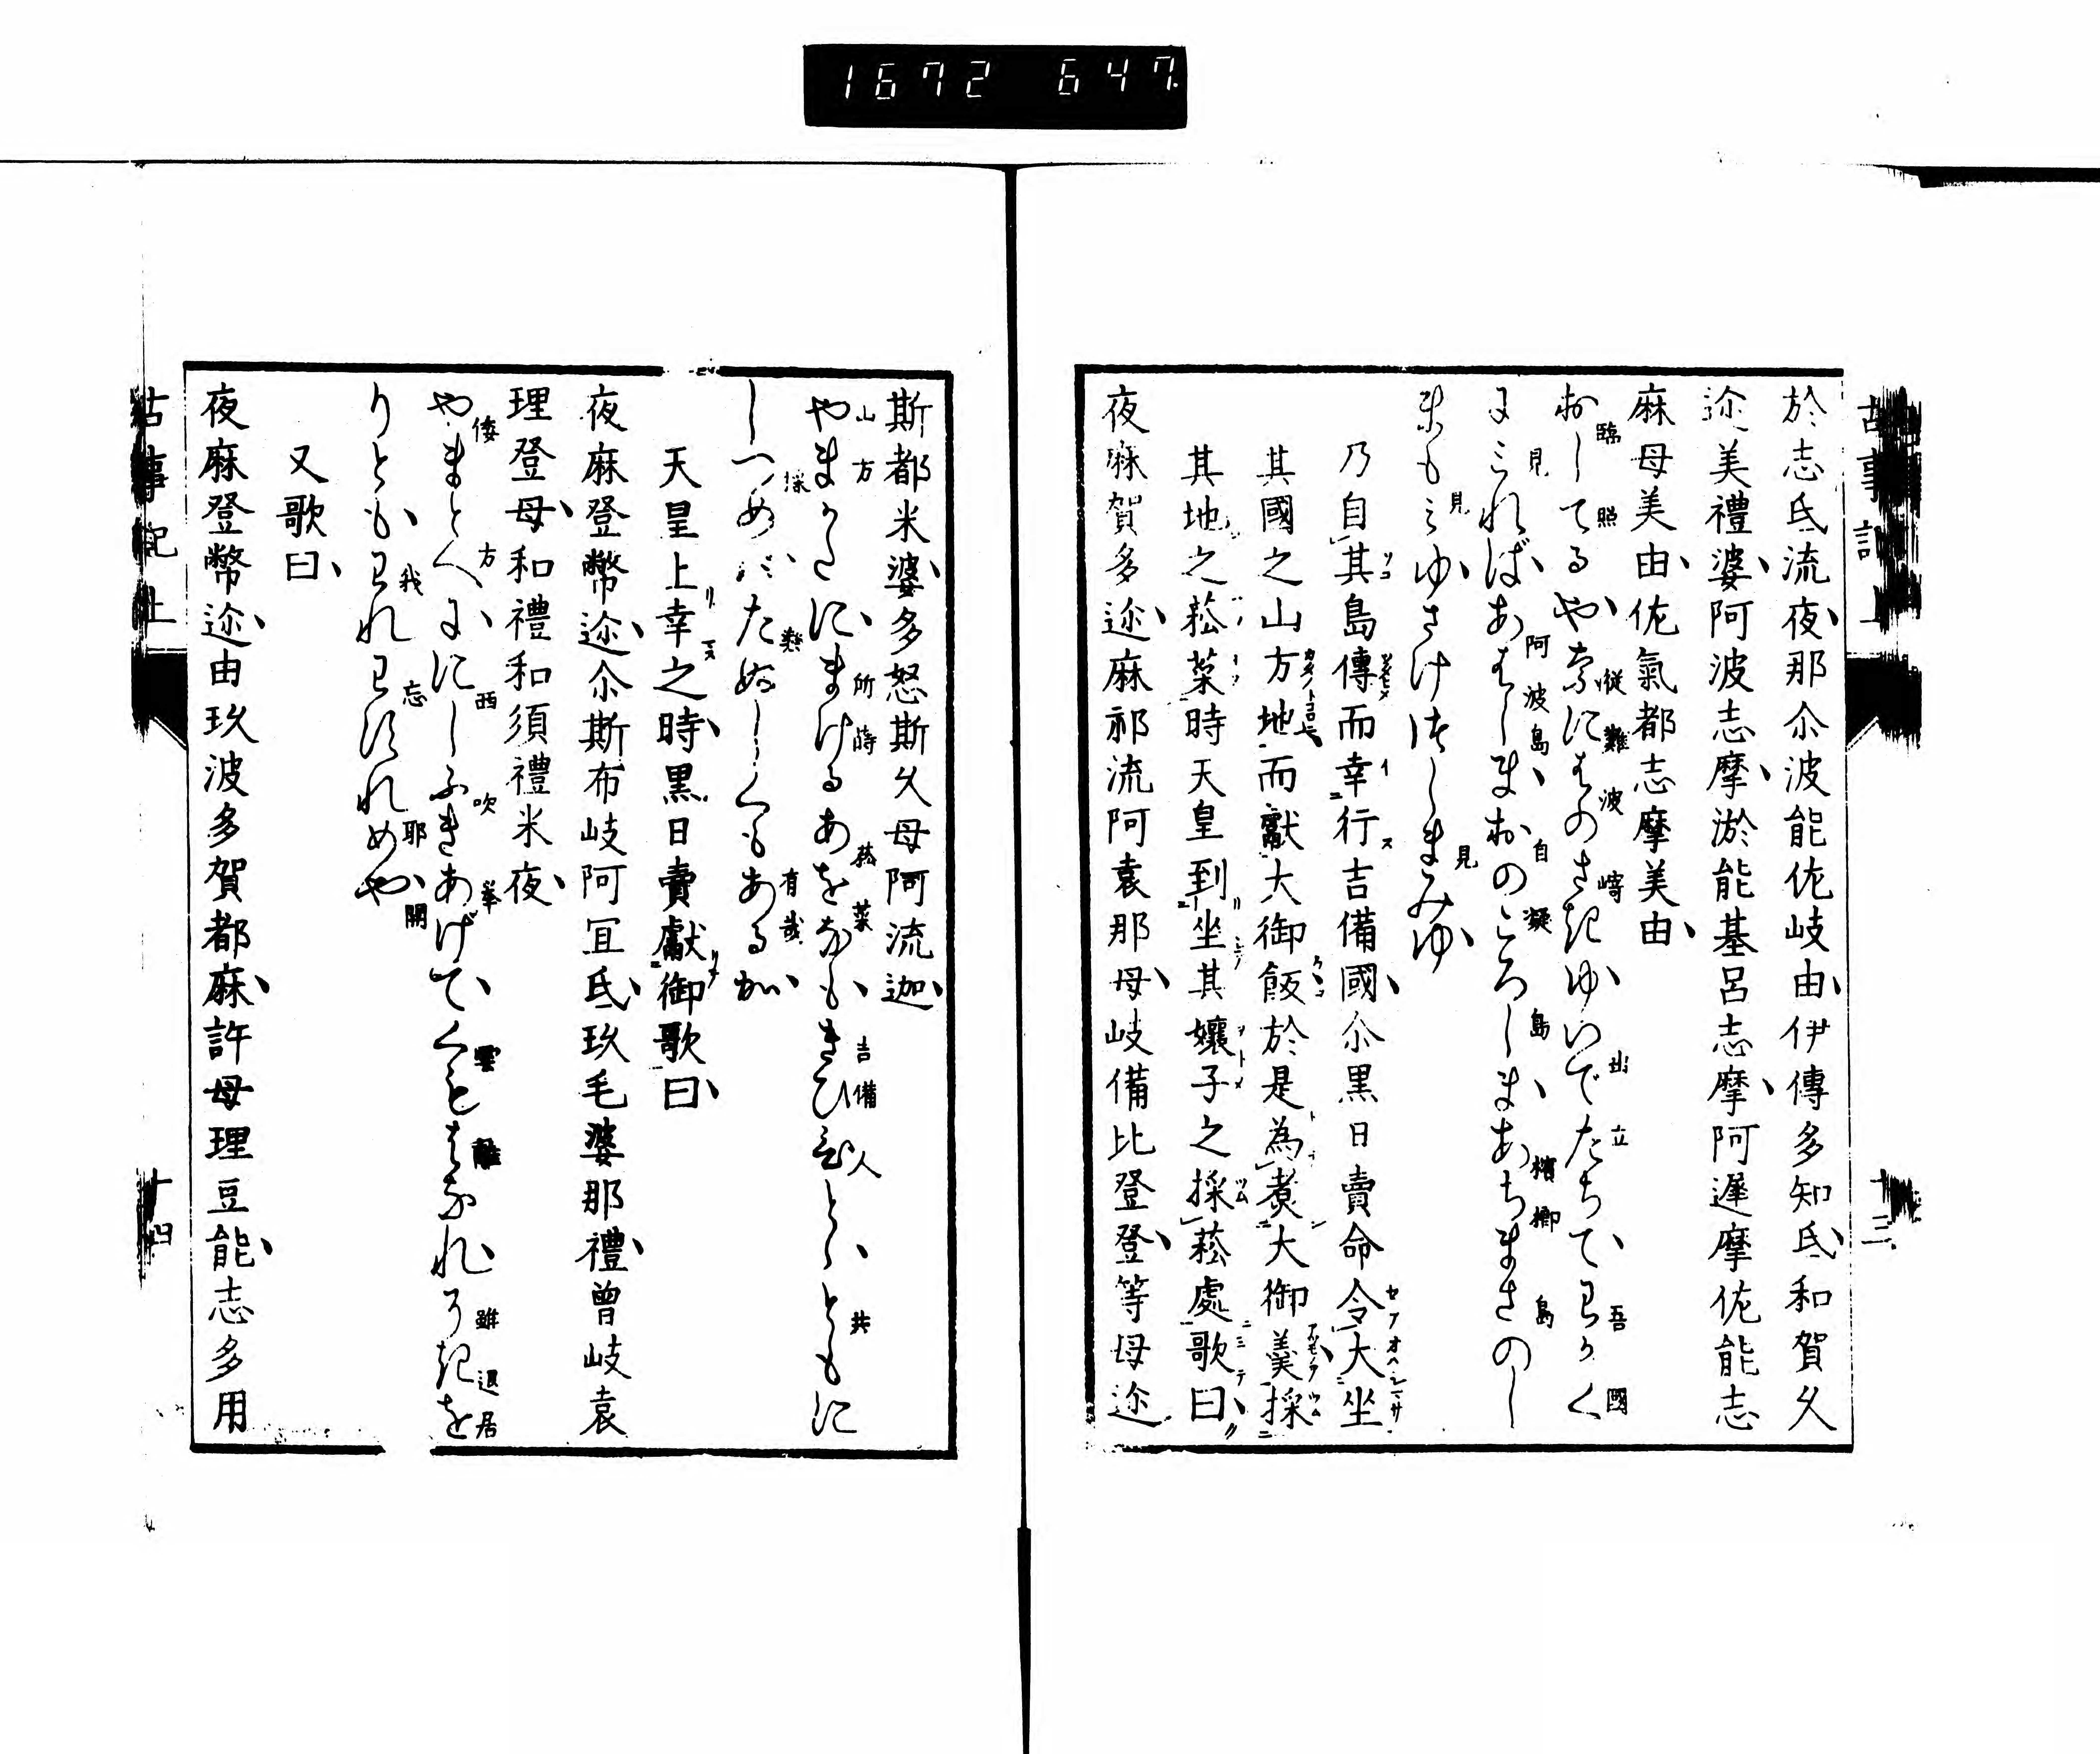 1672 647.
於志氐流夜、那尒波能佐岐由、伊傳多知氐、和賀久
迩美禮婆、阿波志摩、淤能碁呂志摩、阿遲摩佐能志
麻母美由、佐氣都志摩美由、
おしてるや、なにはのさきゆ、いでたちて、わがく
臨 照 従 難 波 﨑 出 立 吾 國
にみれば、あはしま、おのころしま、あぢまさのし
見 阿 波 島 自 凝 島 檳 榔 島
まもみゆ、さけつしまみゆ、
見 見
乃自其島傳而幸行吉備國、尒黒日賣命令大坐
其國之山方地而獻大御飯於是為煮大御羹採
其地之菘菜時天皇到坐其孃子之採菘處歌曰、
夜麻賀多迩、麻祁流阿袁那母、岐備比登登、等母迩
斯都米婆、多怒斯久母阿流迦、
やまがたに、まけるあをなも、きびひとゝ、ともに
山 方 所 蒔 菘 菜 吉 備 人 共
しつめば、たぬしくもあるか、
採 樂 有 哉
天皇上幸之時、黒日賣獻御歌曰、
夜麻登幣迩、尒斯布岐阿宜氐、玖毛婆那禮、曾岐袁
理登母、和禮和須禮米夜、
やまとへに、にしふきあげて、くもはなれ、そきを
倭 方 西 吹 挙 雲 離 雖 退 居
りとも、われわすれめや、
我 忘 耶 開
又歌曰、
夜麻登幣迩、由玖波多賀都麻、許母理豆能、志多用
古事記上
十四